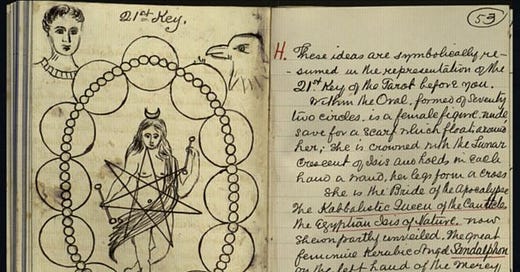 21st Key.
53
H. These ideas are symbolically re-
- sumed in the representation of the
21st Key of the Tarot before you.
Within the Oval, formed of Seventy
two circles, is a female figure, nude
save for a scarf which floats around
her; She is crowned with the Lunar
Crescent of Isis and holds in each
hand a wand, her legs form a cross
She is the Bride of the Apocalypse
The Kabbalistic Queen of the Canticles
the Egyptian Isis of Nature, now
Shewn partly unveiled. The great
feminine Kerubic Angel Sandalphon
on the left hand of the Mercy